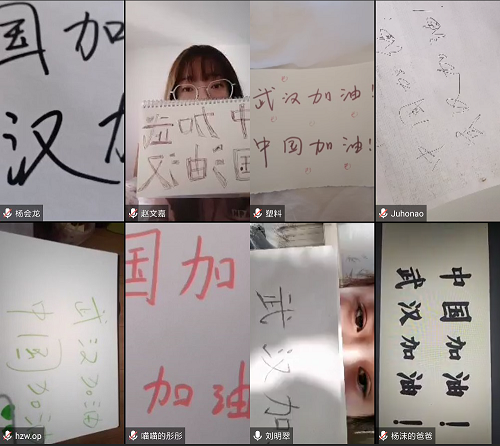 国加
汉
杨会龙
赵文嘉
武汉加油!
中国加油!
塑料
Juhonao
武汉加油
中国加油
hzw.op
国加
加油
喵喵的彤彤
武汉加
刘明翠
中国加油!
武汉加油!
杨沫的爸爸